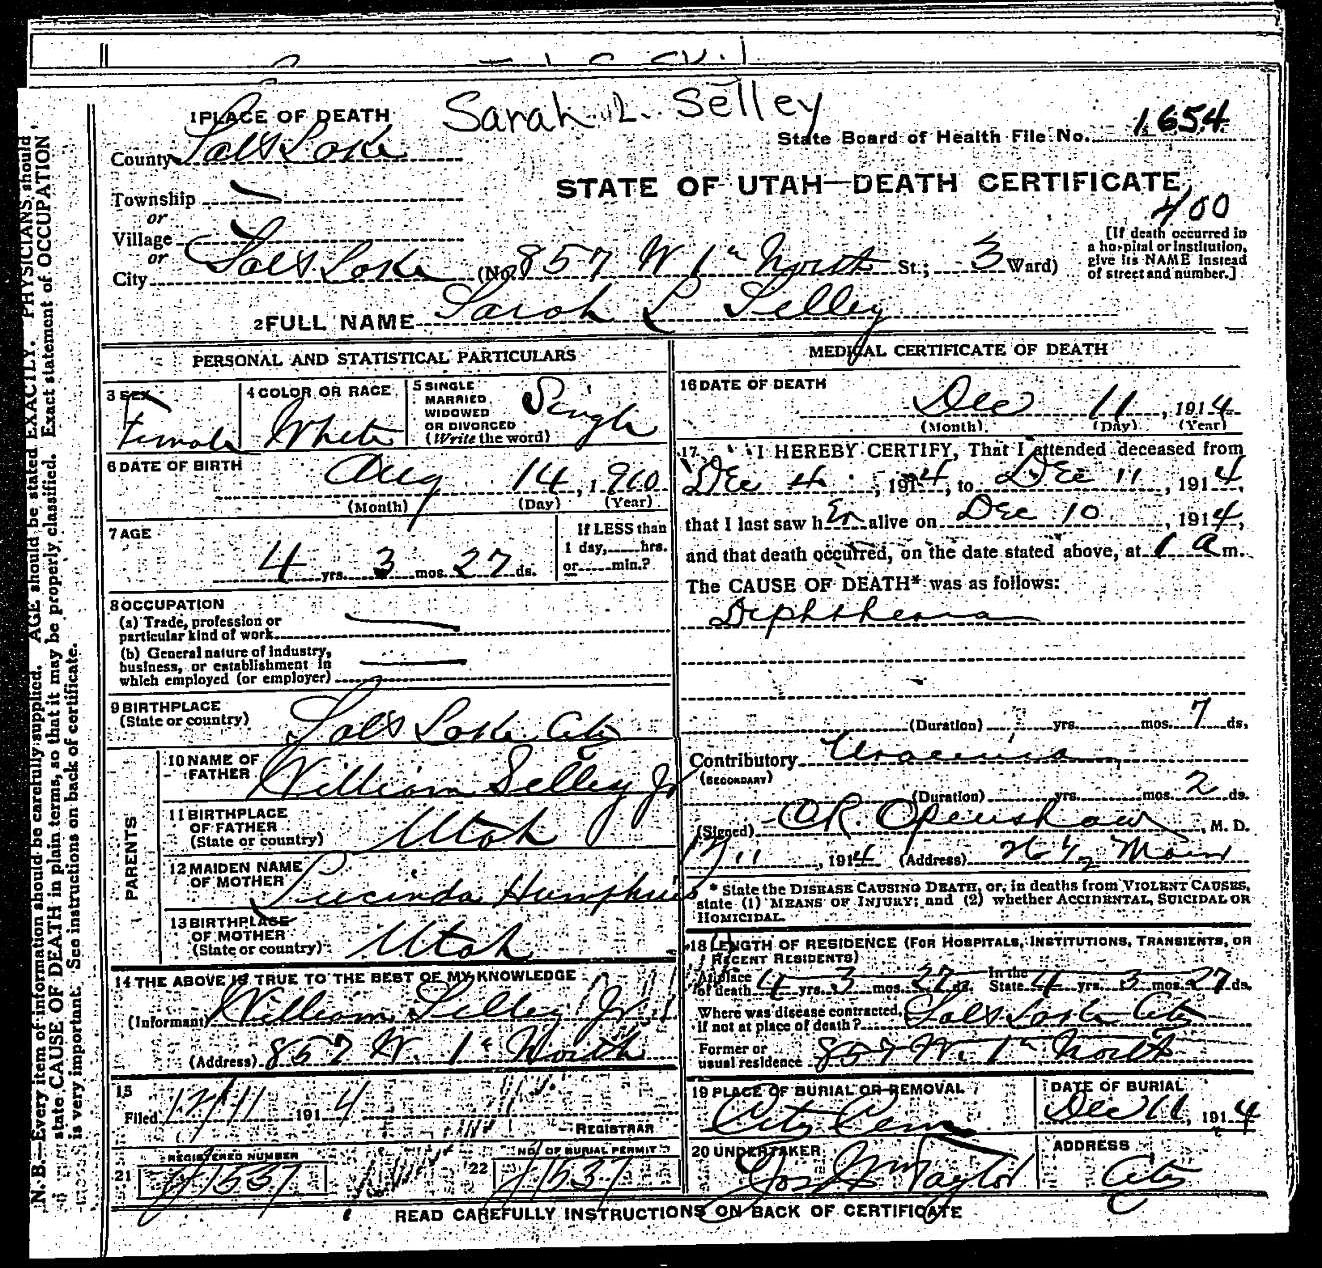 Sarah L. Selley
1 PLACE OF DEATH
State Board of Health File No. 1654
County Salt Lake
STATE OF UTAH—DEATH CERTIFICATE
Township —
or
400
Village
or
[If death occurred in
a hospital or institution,
give its NAME instead
of street and number.]
City Salt Lake (No. 857 W 1st North St.; 3 Ward)
2 FULL NAME Sarah L Selley
PERSONAL AND STATISTICAL PARTICULARS
3 SEX
Female
4 COLOR OR RACE
White
5 SINGLE
MARRIED
WIDOWED
OR DIVORCED
(Write the word)
Single
6 DATE OF BIRTH
Aug 14, 1910
(Month) (Day) (Year)
7 AGE
4 yrs. 3 mos. 27 ds.
If LESS than
1 day, hrs.
or min.?
8 OCCUPATION
(a) Trade, profession or
particular kind of work —
(b) General nature of industry,
business, or establishment in
which employed (or employer) —
9 BIRTHPLACE
(State or country)
Salt Lake City
PARENTS
10 NAME OF
FATHER
William Selley Jr
11 BIRTHPLACE
OF FATHER
(State or country)
Utah
12 MAIDEN NAME
OF MOTHER
Lucinda Humphries
13 BIRTHPLACE
OF MOTHER
(State or country)
Utah
14 THE ABOVE IS TRUE TO THE BEST OF MY KNOWLEDGE
(Informant) William Selley Jr.
(Address) 857 W. 1st North
15
Filed 12/11 1914
REGISTRAR
21
REGISTERED NUMBER
J1537
22
NO. OF BURIAL PERMIT
J1537
MEDICAL CERTIFICATE OF DEATH
16 DATE OF DEATH
Dec 11, 1914
(Month) (Day) (Year)
17 I HEREBY CERTIFY, That I attended deceased from
Dec 4, 1914, to Dec 11, 1914,
that I last saw her alive on Dec 10, 1914,
and that death occurred, on the date stated above, at 1 a m.
The CAUSE OF DEATH* was as follows:
Diphtheria
(Duration) yrs. mos. 7 ds.
Contributory Uraemia
(SECONDARY)
(Duration) yrs. mos. 2 ds.
(Signed) C R. Openshaw, M. D.
12/11, 1914 (Address) 26 1/2 Main
* State the DISEASE CAUSING DEATH, or, in deaths from VIOLENT CAUSES,
state (1) MEANS OF INJURY; and (2) whether ACCIDENTAL, SUICIDAL OR
HOMICIDAL.
18 LENGTH OF RESIDENCE (FOR HOSPITALS, INSTITUTIONS, TRANSIENTS, OR
RECENT RESIDENTS)
At place
of death 4 yrs. 3 mos. 27 ds. In the
State 4 yrs. 3 mos. 27 ds.
Where was disease contracted,
if not at place of death? Salt Lake City
Former or
usual residence 857 W. 1st North
19 PLACE OF BURIAL OR REMOVAL
City Cem
DATE OF BURIAL
Dec 11, 1914
20 UNDERTAKER
Jos Wm Taylor
ADDRESS
City
READ CAREFULLY INSTRUCTIONS ON BACK OF CERTIFICATE
N. B.—Every item of information should be carefully supplied. AGE should be stated EXACTLY. PHYSICIANS should
state CAUSE OF DEATH in plain terms, so that it may be properly classified. Exact statement of OCCUPATION
is very important. See instructions on back of certificate.